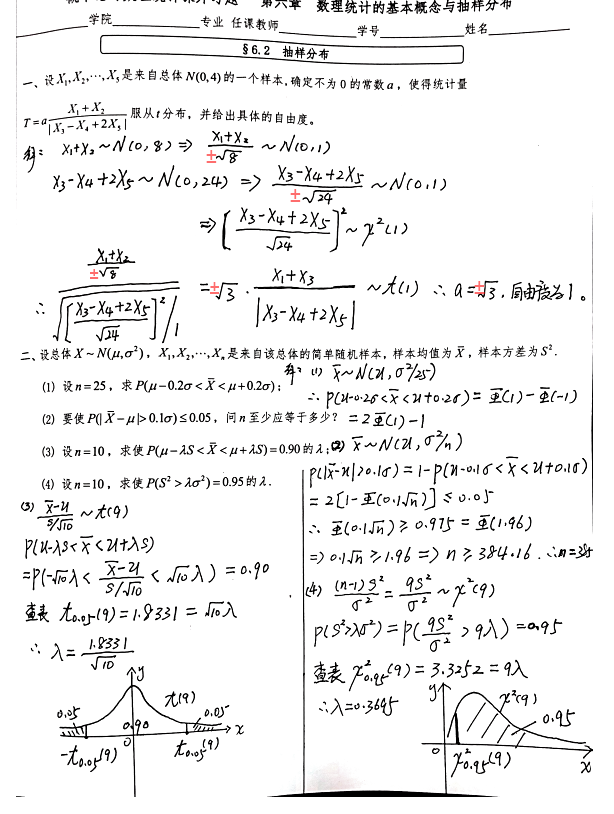 第六章 数理统计的基本概念与抽样分布
学院 专业 任课教师 学号 姓名
§6.2 抽样分布
一、设X₁,X₂,⋯,X₅是来自总体N(0,4)的一个样本,确定不为0的常数a，使得统计量
T=a (X₁+X₂)/|X₃−X₄+2X₅| 服从t分布，并给出具体的自由度。
解: X₁+X₂~N(0,8) ⇒ (X₁+X₂)/(±√8) ~N(0,1)
X₃-X₄+2X₅~N(0,24) ⇒ (X₃-X₄+2X₅)/(±√24) ~N(0,1)
⇒ [(X₃-X₄+2X₅)/√24]² ~χ²(1)
∴ ((X₁+X₂)/(±√8)) / √([(X₃-X₄+2X₅)/√24]²/1) = ±√3 · (X₁+X₃)/|X₃-X₄+2X₅| ~t(1) ∴ a=±√3, 自由度为1。
二、设总体X~N(μ,σ²)，X₁,X₂,⋯,Xₙ是来自该总体的简单随机样本，样本均值为X̄，样本方差为S².
⑴ 设n=25，求P(μ−0.2σ<X̄<μ+0.2σ);
⑵ 要使P(|X̄−μ|>0.1σ)≤0.05，问n至少应等于多少?
⑶ 设n=10，求使P(μ−λS<X̄<μ+λS)=0.90的λ;
⑷ 设n=10，求使P(S²>λσ²)=0.95的λ.
解: (1) X̄~N(μ,σ²/25)
∴P(μ-0.2σ<X̄<μ+0.2σ)=Φ(1)-Φ(-1)
=2Φ(1)-1
(2) X̄~N(μ,σ²/n)
P(|X̄-μ|>0.1σ)=1-P(μ-0.1σ<X̄<μ+0.1σ)
=2[1-Φ(0.1√n)]≤0.05
∴Φ(0.1√n)≥0.975=Φ(1.96)
⇒0.1√n≥1.96⇒n≥384.16. ∴n=385
(3) (X̄-μ)/(S/√10) ~t(9)
P(μ-λS<X̄<μ+λS)
=P(-√10λ< (X̄-μ)/(S/√10) <√10λ)=0.90
查表 t₀.₀₅(9)=1.8331=√10λ
∴λ=1.8331/√10
y
t(9)
0.05 0.90 0.05
x
0
-t₀.₀₅(9) t₀.₀₅(9)
(4) (n-1)S²/σ² = 9S²/σ² ~χ²(9)
P(S²>λσ²)=P(9S²/σ²>9λ)=0.95
查表 χ²₀.₉₅(9)=3.3252=9λ
∴λ=0.3695
y
χ²(9)
0.95
0 χ²₀.₉₅(9) x